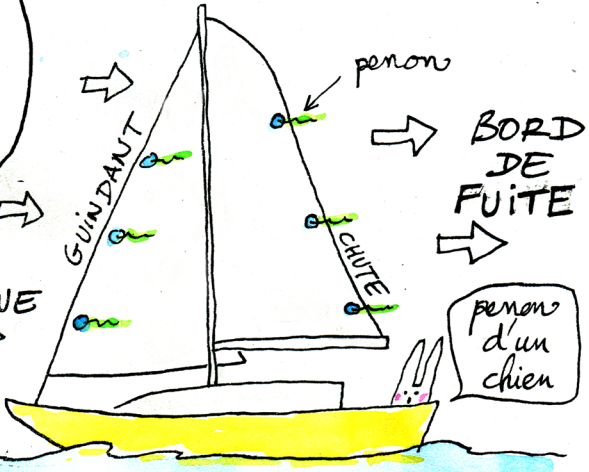 penon
GUINDANT
BORD
DE
FUITE
CHUTE
penon
d'un
chien